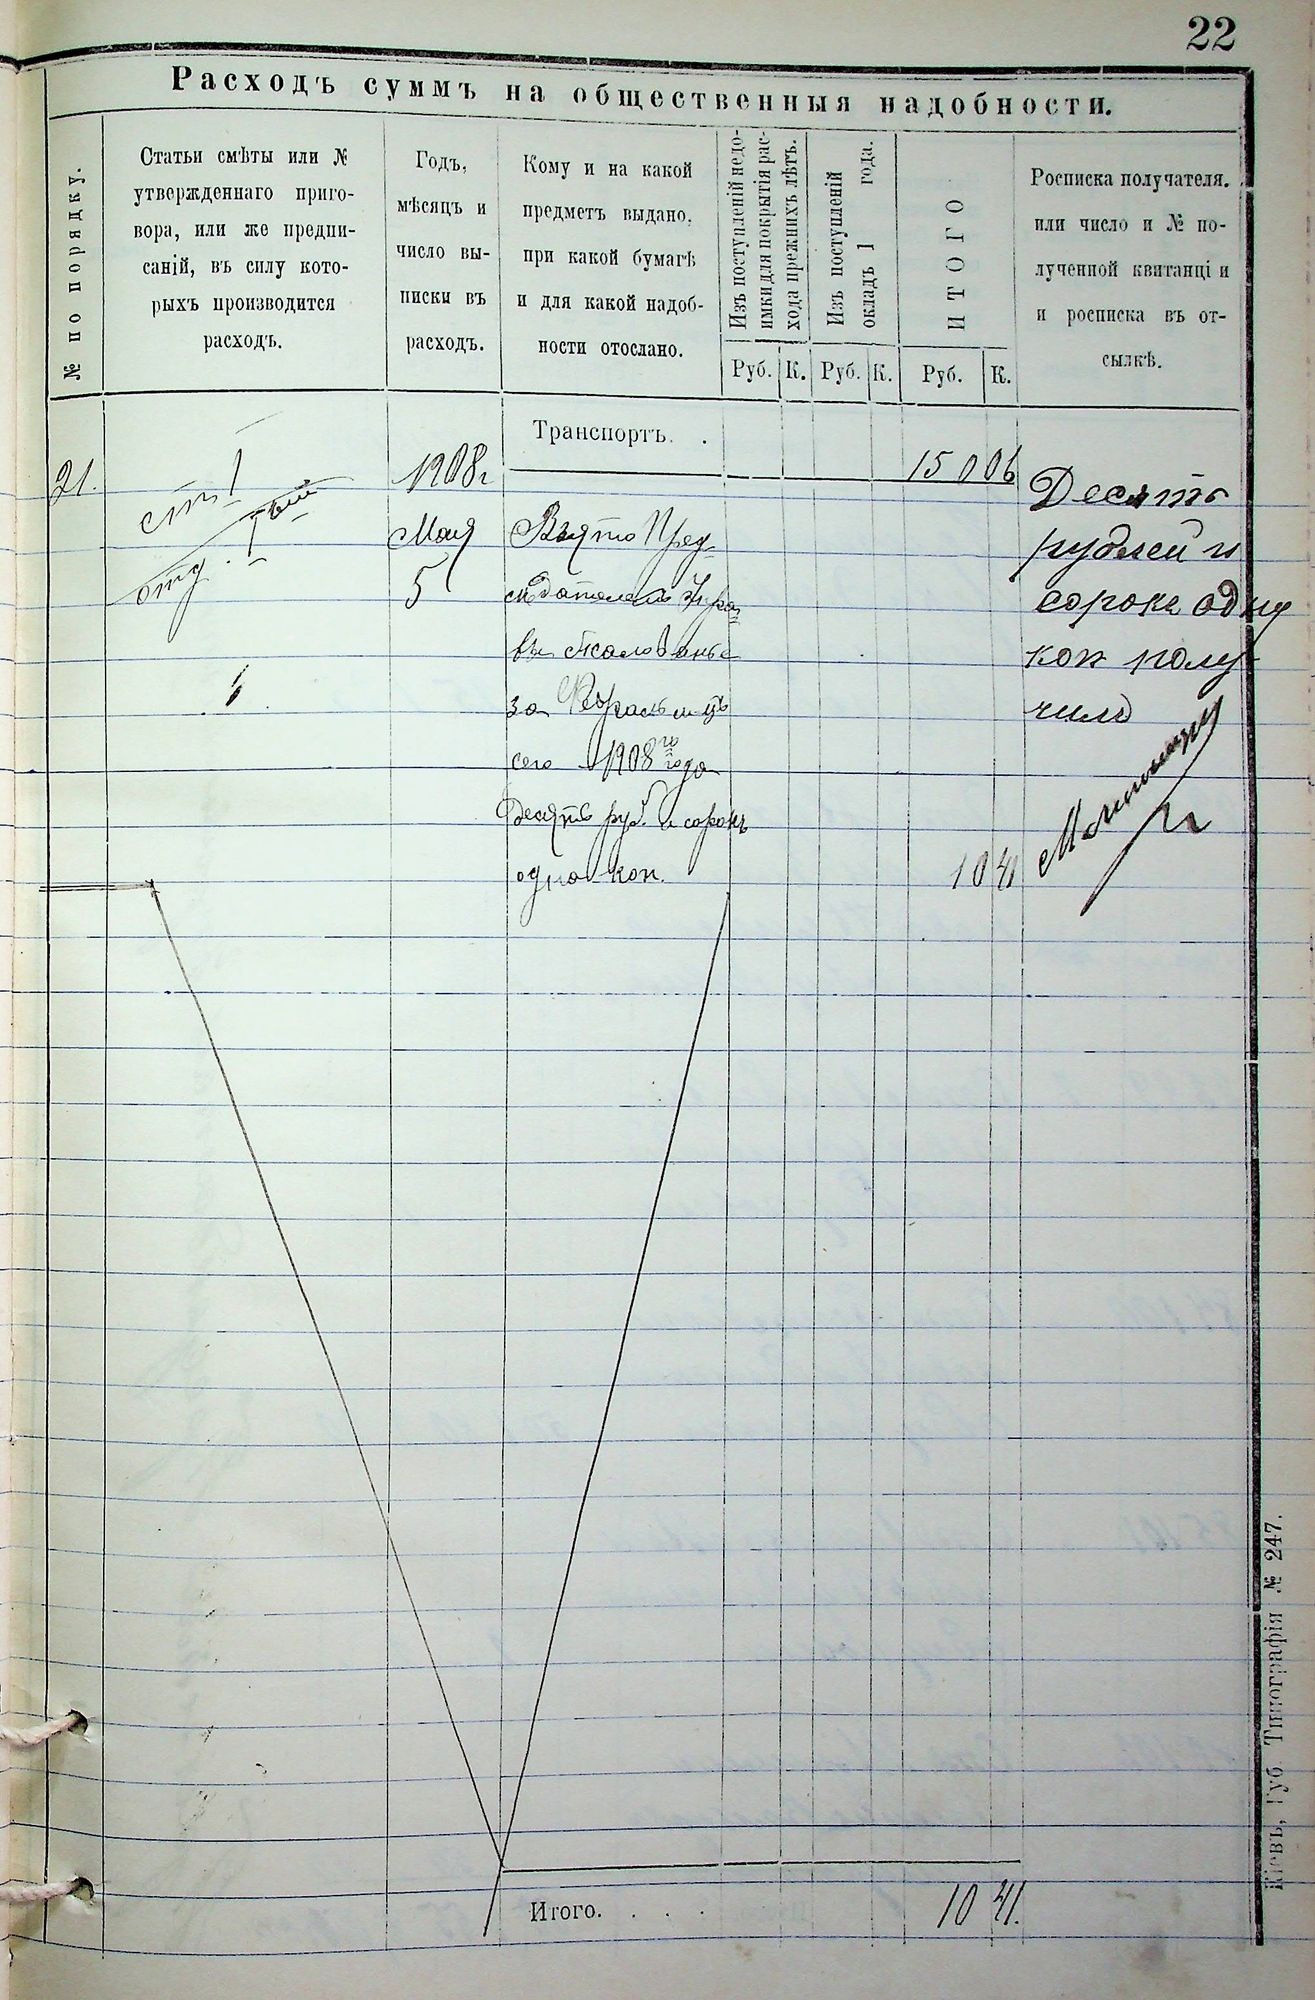 22
Расходъ суммъ на общественныя надобности.
№ по порядку.
Статьи смѣты или №
утвержденнаго приго-
вора, или же предпи-
саній, въ силу кото-
рыхъ производится
расходъ.
Годъ,
мѣсяцъ и
число вы-
писки въ
расходъ.
Кому и на какой
предметъ выдано,
при какой бумагѣ
и для какой надоб-
ности отослано.
Изъ поступленій недо-
имки для покрытія рас-
хода прежнихъ лѣтъ.
Изъ поступленій
окладъ 1 года.
ИТОГО
Росписка получателя.
или число и № по-
лученной квитанці и
и росписка въ от-
сылкѣ.
Руб. К. Руб. К. Руб. К.
Транспортъ. .
150 06
21.
ст. 1
отд. 1
1908 г
Мая
5
Взято Пред-
сѣдателемъ Упра-
вы Жалованье
за Февраль м-цъ
сего 1908 го года
Десять руб. и сорокъ
одна коп.
10 41
Десять
рублей и
сорокъ одну
коп полу-
чилъ
Итого. . . .
10 41.
Кіевъ, Губ. Типографія № 247.